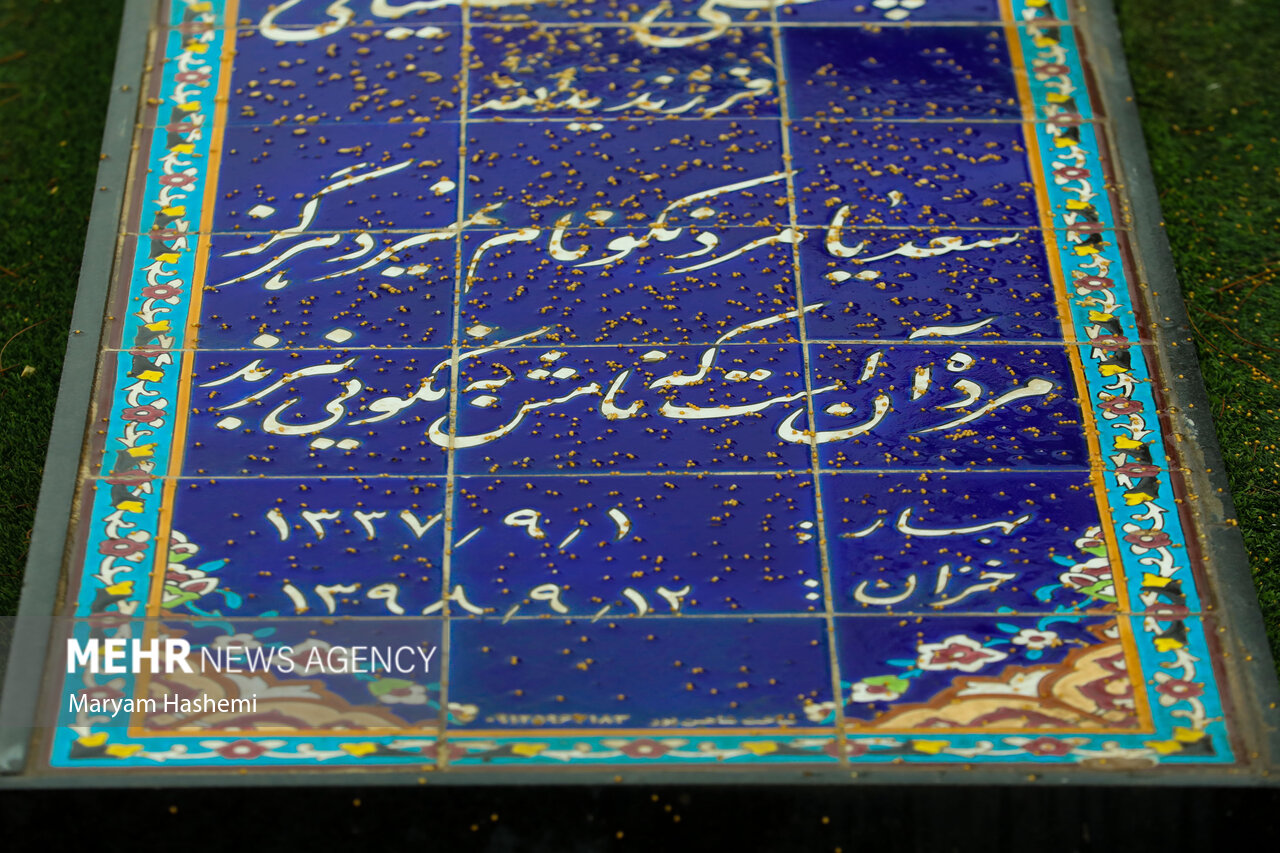 فرزند یدالله
سعدیا مرد نکونام نمیرد هرگز
مرده آن است که نامش به نکویی نبرند
بهار : ۱٫۹٫۱۳۳۷
خزان : ۱۲٫۹٫۱۳۹۸
MEHR NEWS AGENCY
Maryam Hashemi